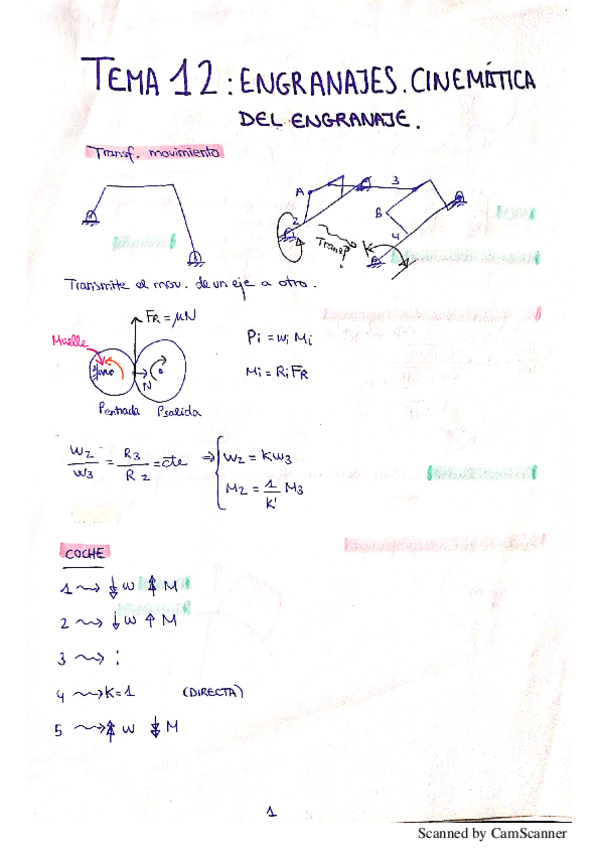 TEMA 12: ENGRANAJES. CINEMÁTICA
DEL ENGRANAJE.
Transf. movimiento
A
3
2
B
4
Transf
?
K
Transmite el mov. de un eje a otro.
FR = μN
Muelle
N
Pentrada Psalida
Pi = wi Mi
Mi = Ri FR
w2/w3 = R3/R2 = cte ⇒ { w2 = K w3
M2 = 1/K' M3
COCHE
1 ⇝ ↓ w ↑ M
2 ⇝ ↓ w ↑ M
3 ⇝ :
4 ⇝ K = 1 (DIRECTA)
5 ⇝ ↑ w ↓ M
1
Scanned by CamScanner